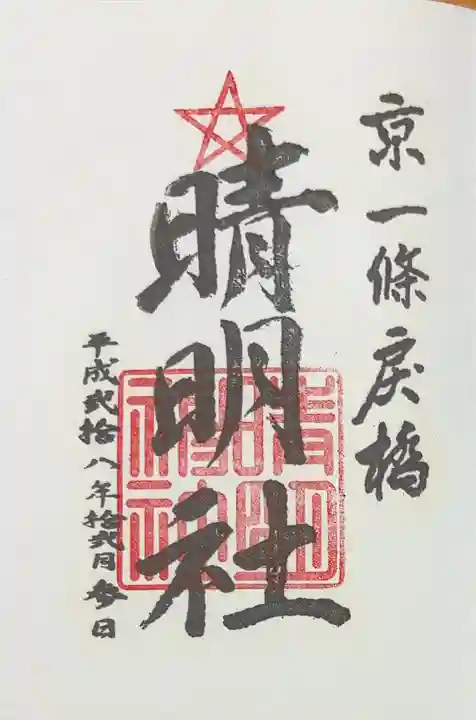 京一條戻橋
晴明社
晴明神社
平成弐拾八年拾弐月参日